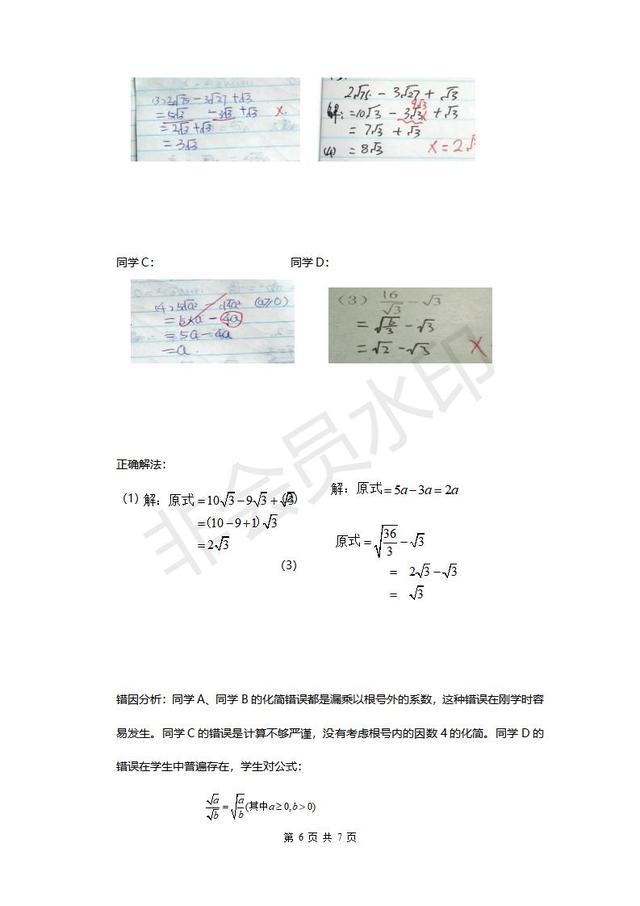 (3) 2√75 - 3√27 + √3
= 5√3 - 3√3 + √3 ×
= 2√3 + √3
= 3√3
2√75 - 3√27 + √3
9√3
解: = 10√3 - 3√3 + √3
= 7√3 + √3
(4) = 8√3 × = 2√3
同学C： 同学D：
= 5a - 4a
= 5a - 4a
= a
(3) 16/√3 - √3
= √2 - √3 ×
正确解法：
(1) 解：原式=10√3-9√3+√3
=(10-9+1)√3
=2√3
解：原式=5a-3a=2a
(3)
原式=√(36/3)-√3
= 2√3-√3
= √3
错因分析：同学A、同学B的化简错误都是漏乘以根号外的系数，这种错误在刚学时容
易发生。同学C的错误是计算不够严谨，没有考虑根号内的因数4的化简。同学D的
错误在学生中普遍存在，学生对公式：
√a/√b=√(a/b)(其中a≥0,b>0)
第 6 页 共 7 页
非会员水印